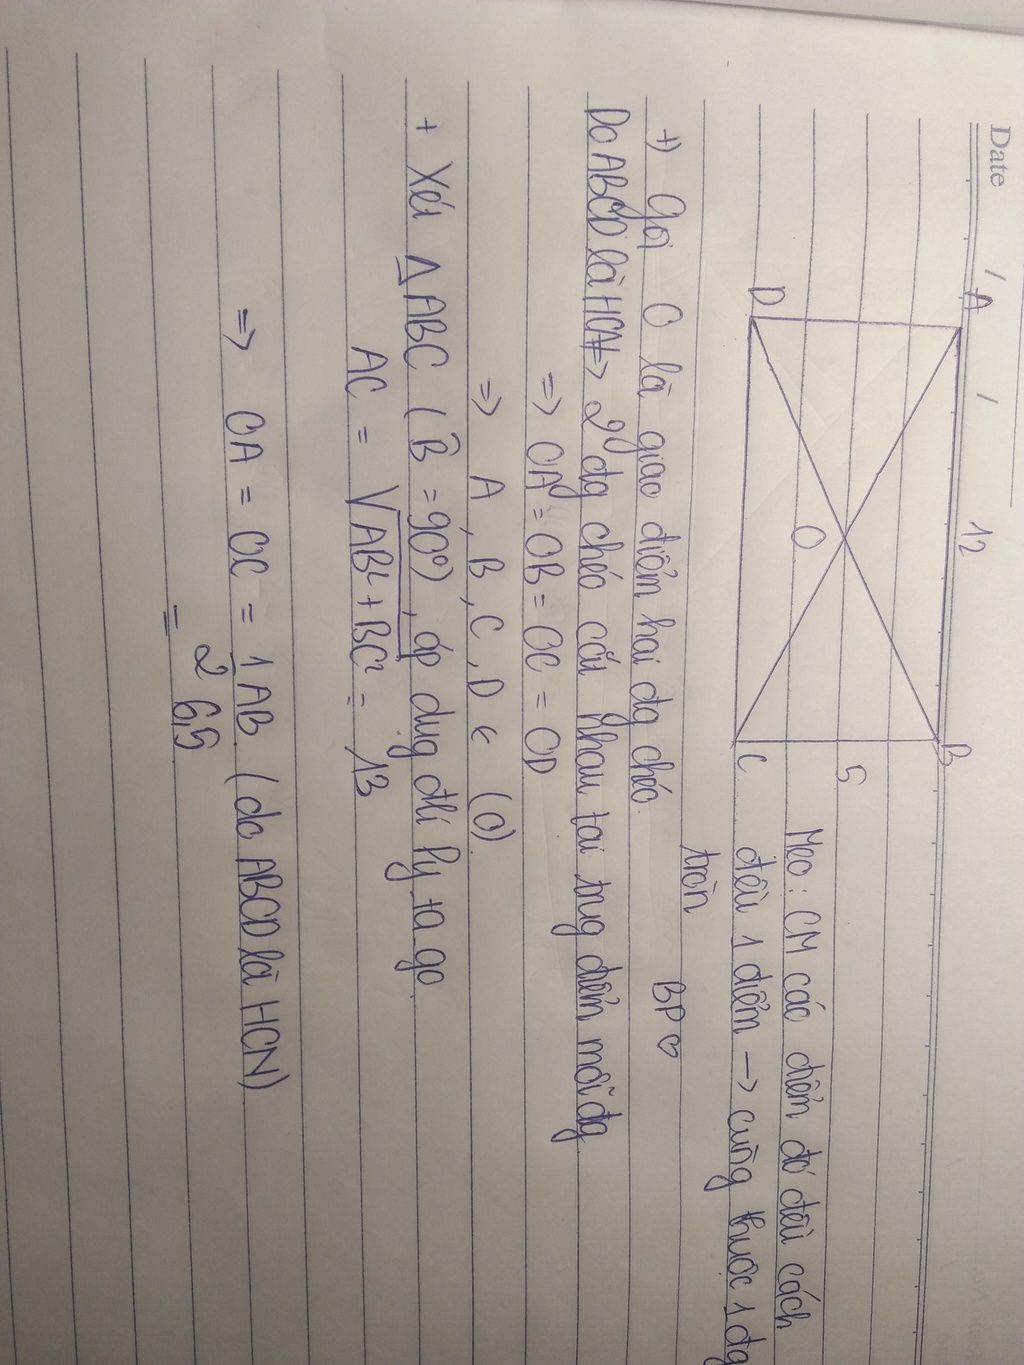 Date / / 
A 12 B
5
O
D C
Mẹo: CM các điểm đó đều cách
đều 1 điểm -> cùng thuộc 1 đg
tròn
BP ♡
+) Gọi O là giao điểm hai đg chéo
Do ABCD là HCN => 2 đg chéo cắt nhau tại trug điểm mỗi đg
=> OA = OB = OC = OD
=> A, B, C, D ∈ (O)
+ Xét △ABC (B̂ = 90°), áp dụg đlí Py-ta-go
AC = √AB² + BC² = 13
=> OA = OC = 1/2 AB (do ABCD là HCN)
= 6,5